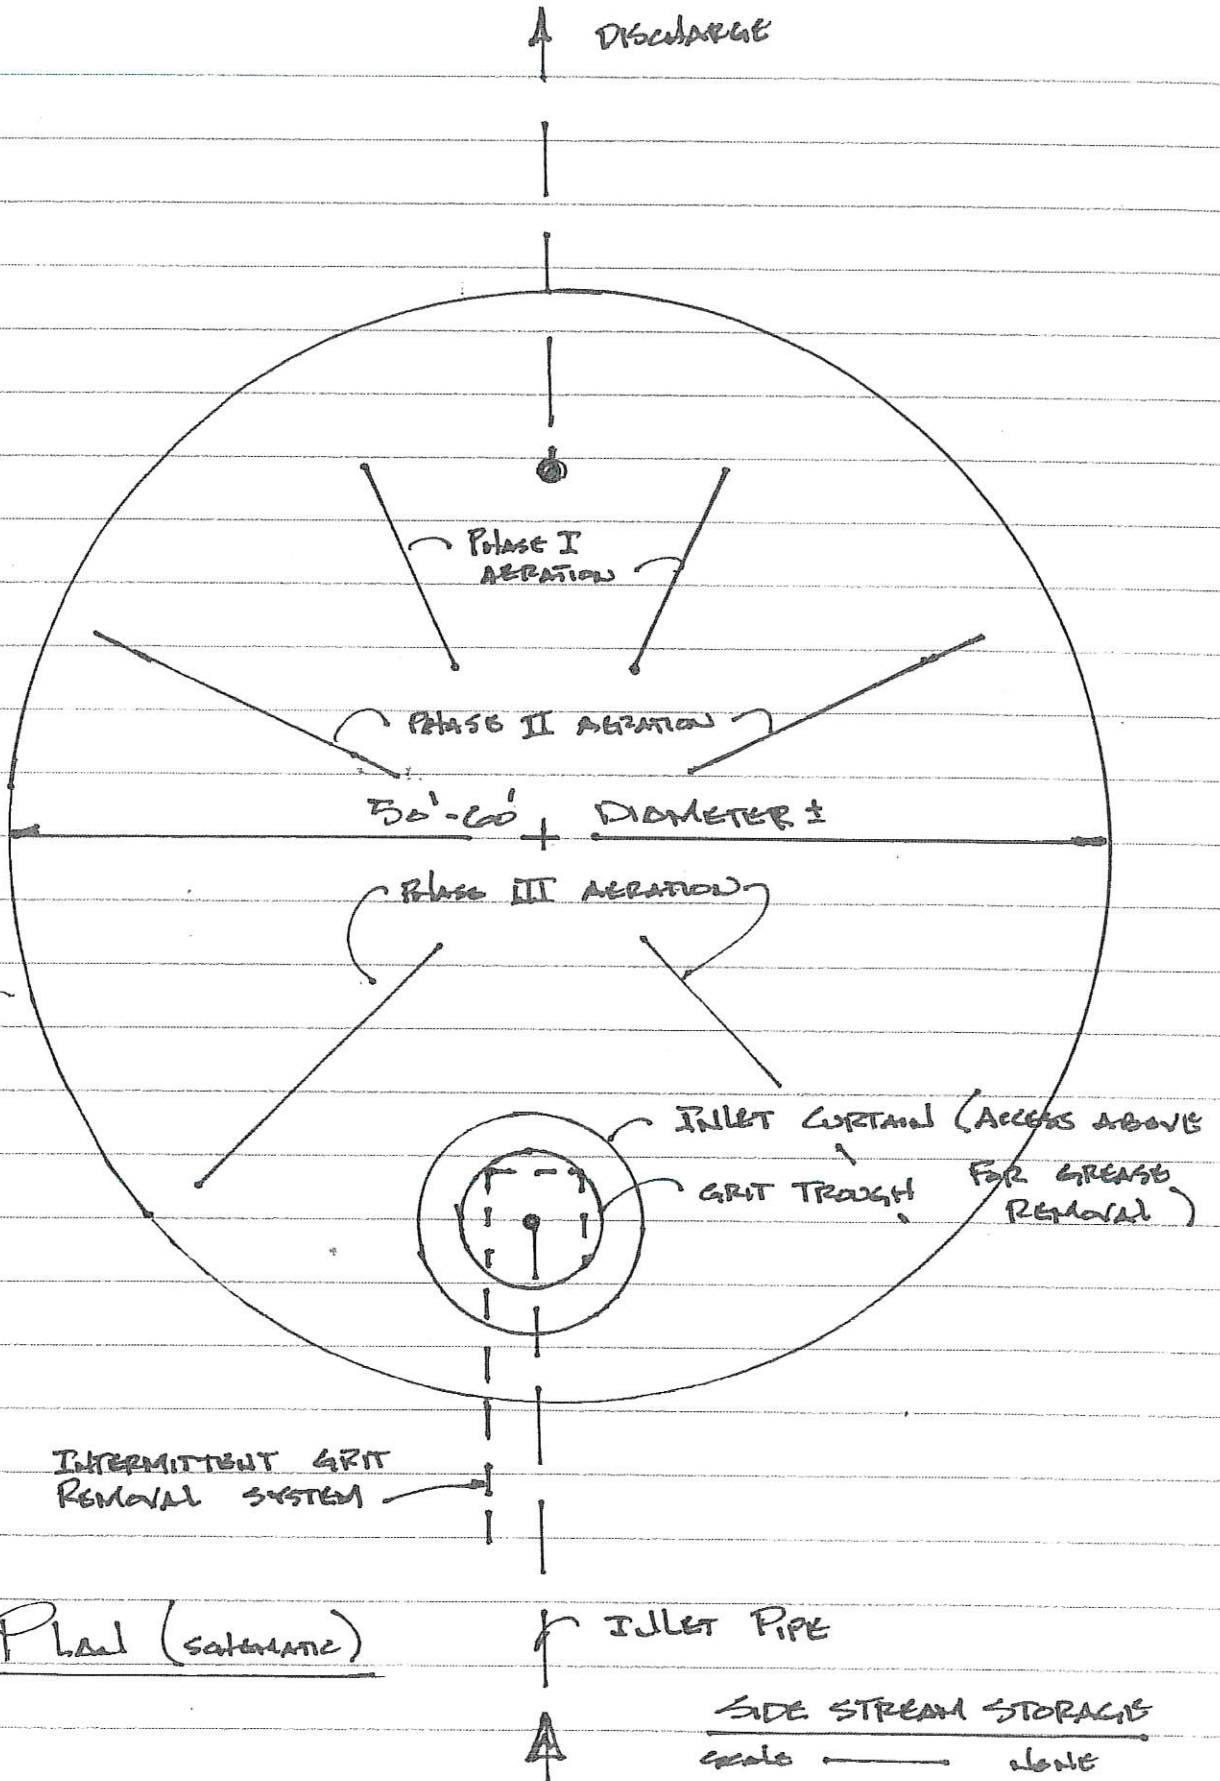 DISCHARGE
PHASE I
AERATION
PHASE II AERATION
50'-60' DIAMETER ±
PHASE III AERATION
INLET CURTAIN (ACCESS ABOVE
FOR GREASE
REMOVAL)
GRIT TROUGH
INTERMITTENT GRIT
REMOVAL SYSTEM
PLAN (SCHEMATIC)
INLET PIPE
SIDE STREAM STORAGE
SCALE — NONE